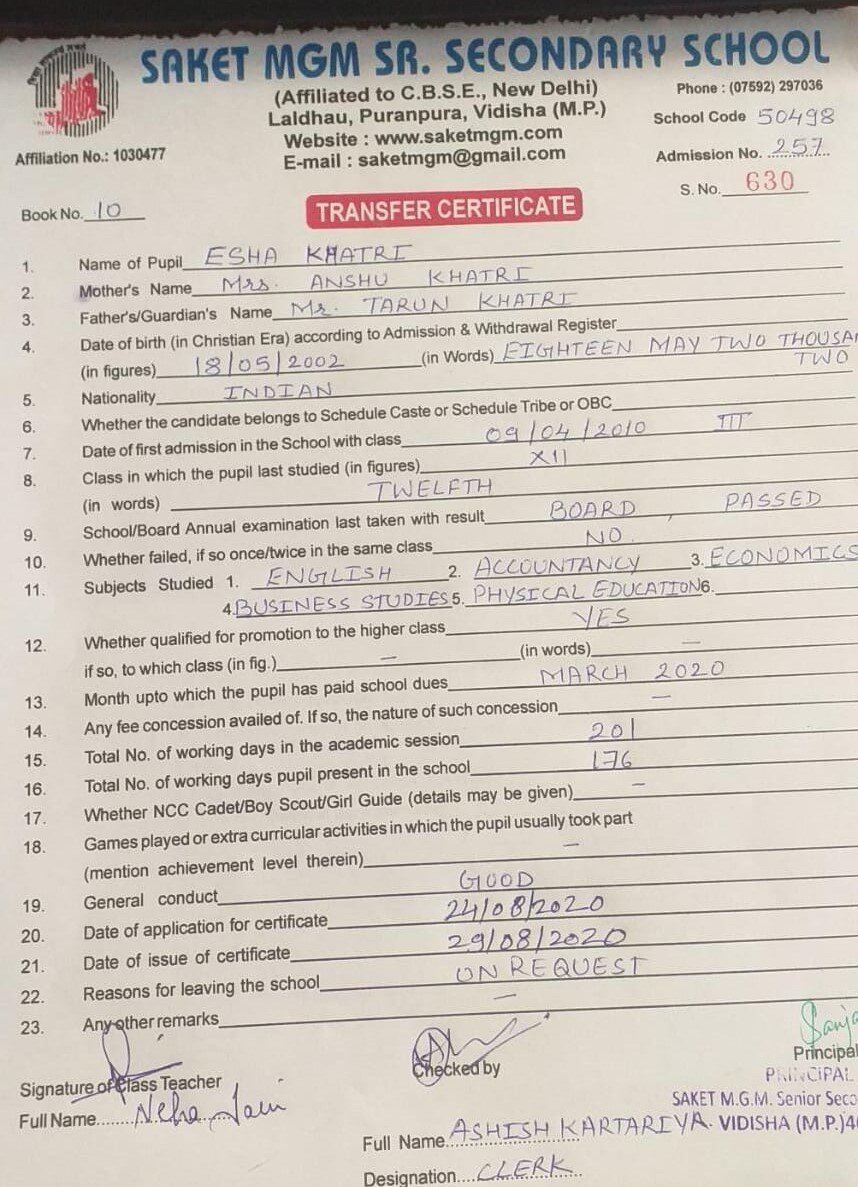 SAKET MGM SR. SECONDARY SCHOOL
(Affiliated to C.B.S.E., New Delhi)
Laldhau, Puranpura, Vidisha (M.P.)
Website : www.saketmgm.com
E-mail : saketmgm@gmail.com
Phone : (07592) 297036
School Code 50498
Admission No. 257
S. No. 630
Affiliation No.: 1030477
Book No. 10
TRANSFER CERTIFICATE
1. Name of Pupil ESHA KHATRI
2. Mother's Name Mrs. ANSHU KHATRI
3. Father's/Guardian's Name Mr. TARUN KHATRI
4. Date of birth (in Christian Era) according to Admission & Withdrawal Register
(in figures) 18/05/2002 (in Words) EIGHTEEN MAY TWO THOUSAN
TWO
5. Nationality INDIAN
6. Whether the candidate belongs to Schedule Caste or Schedule Tribe or OBC
7. Date of first admission in the School with class 09/04/2010 III
8. Class in which the pupil last studied (in figures) XII
(in words) TWELFTH
9. School/Board Annual examination last taken with result BOARD, PASSED
10. Whether failed, if so once/twice in the same class NO.
11. Subjects Studied 1. ENGLISH 2. ACCOUNTANCY 3. ECONOMICS
4. BUSINESS STUDIES 5. PHYSICAL EDUCATION 6.
12. Whether qualified for promotion to the higher class YES
if so, to which class (in fig.) — (in words) —
13. Month upto which the pupil has paid school dues MARCH 2020
14. Any fee concession availed of. If so, the nature of such concession —
15. Total No. of working days in the academic session 201
16. Total No. of working days pupil present in the school 176
17. Whether NCC Cadet/Boy Scout/Girl Guide (details may be given) —
18. Games played or extra curricular activities in which the pupil usually took part
(mention achievement level therein) —
19. General conduct GOOD
20. Date of application for certificate 24/08/2020
21. Date of issue of certificate 29/08/2020
22. Reasons for leaving the school ON REQUEST
23. Any other remarks —
Signature of Class Teacher
Full Name........ Neha Jain
Checked by
Full Name ASHISH KARTARIYA.
Designation.... CLERK
Sanja
Principal
PRINCIPAL
SAKET M.G.M. Senior Seco
VIDISHA (M.P.)4